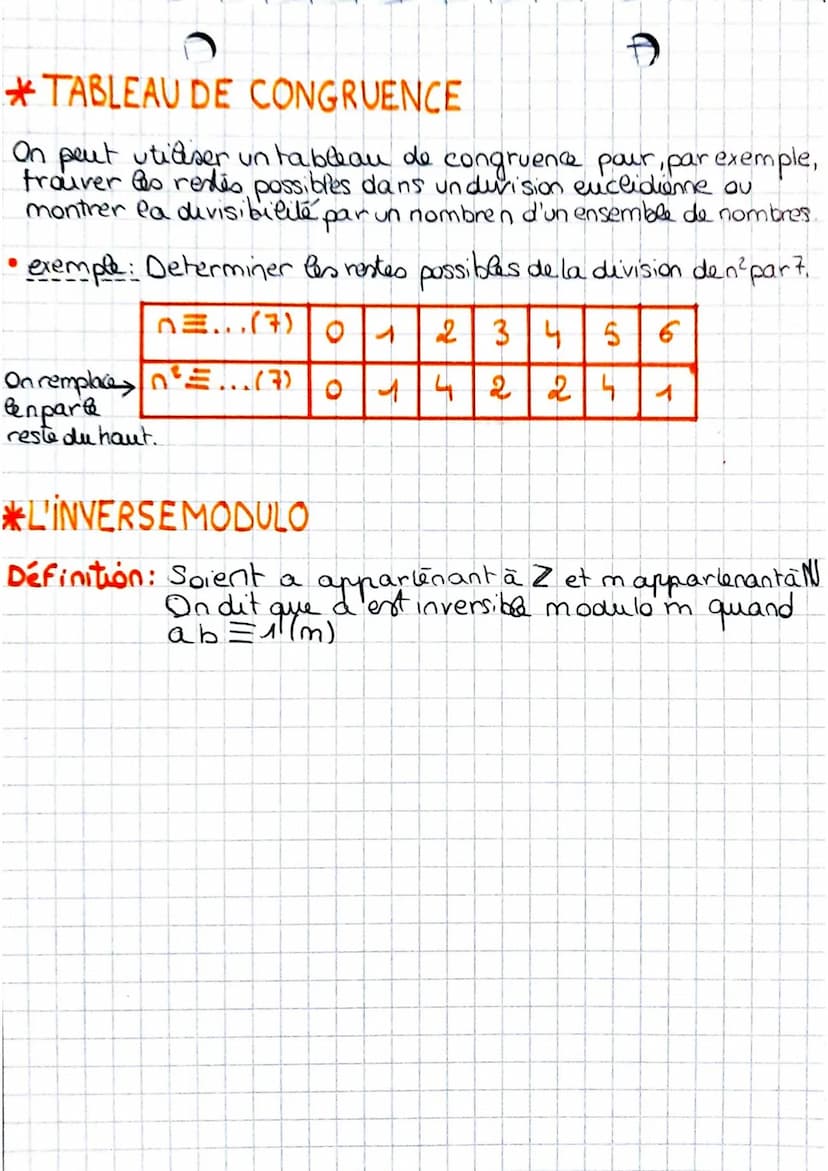 * TABLEAU DE CONGRUENCE
On peut utiliser un tableau de congruence pour, par exemple,
trouver les restes possibles dans un division euclidienne ou
montrer la divisibilité par un nombre n d'un ensemble de nombres.
• exemple: Determiner les restes possibles de la division de n² par 7.
n≡...(7) 0 1 2 3 4 5 6
On remplace n²≡...(7) 0 1 4 2 2 4 1
le n par le
reste du haut.
* L'INVERSE MODULO
Définition: Soient a appartenant à Z et m appartenant à N
On dit que a est inversible modulo m quand
ab≡1(m)